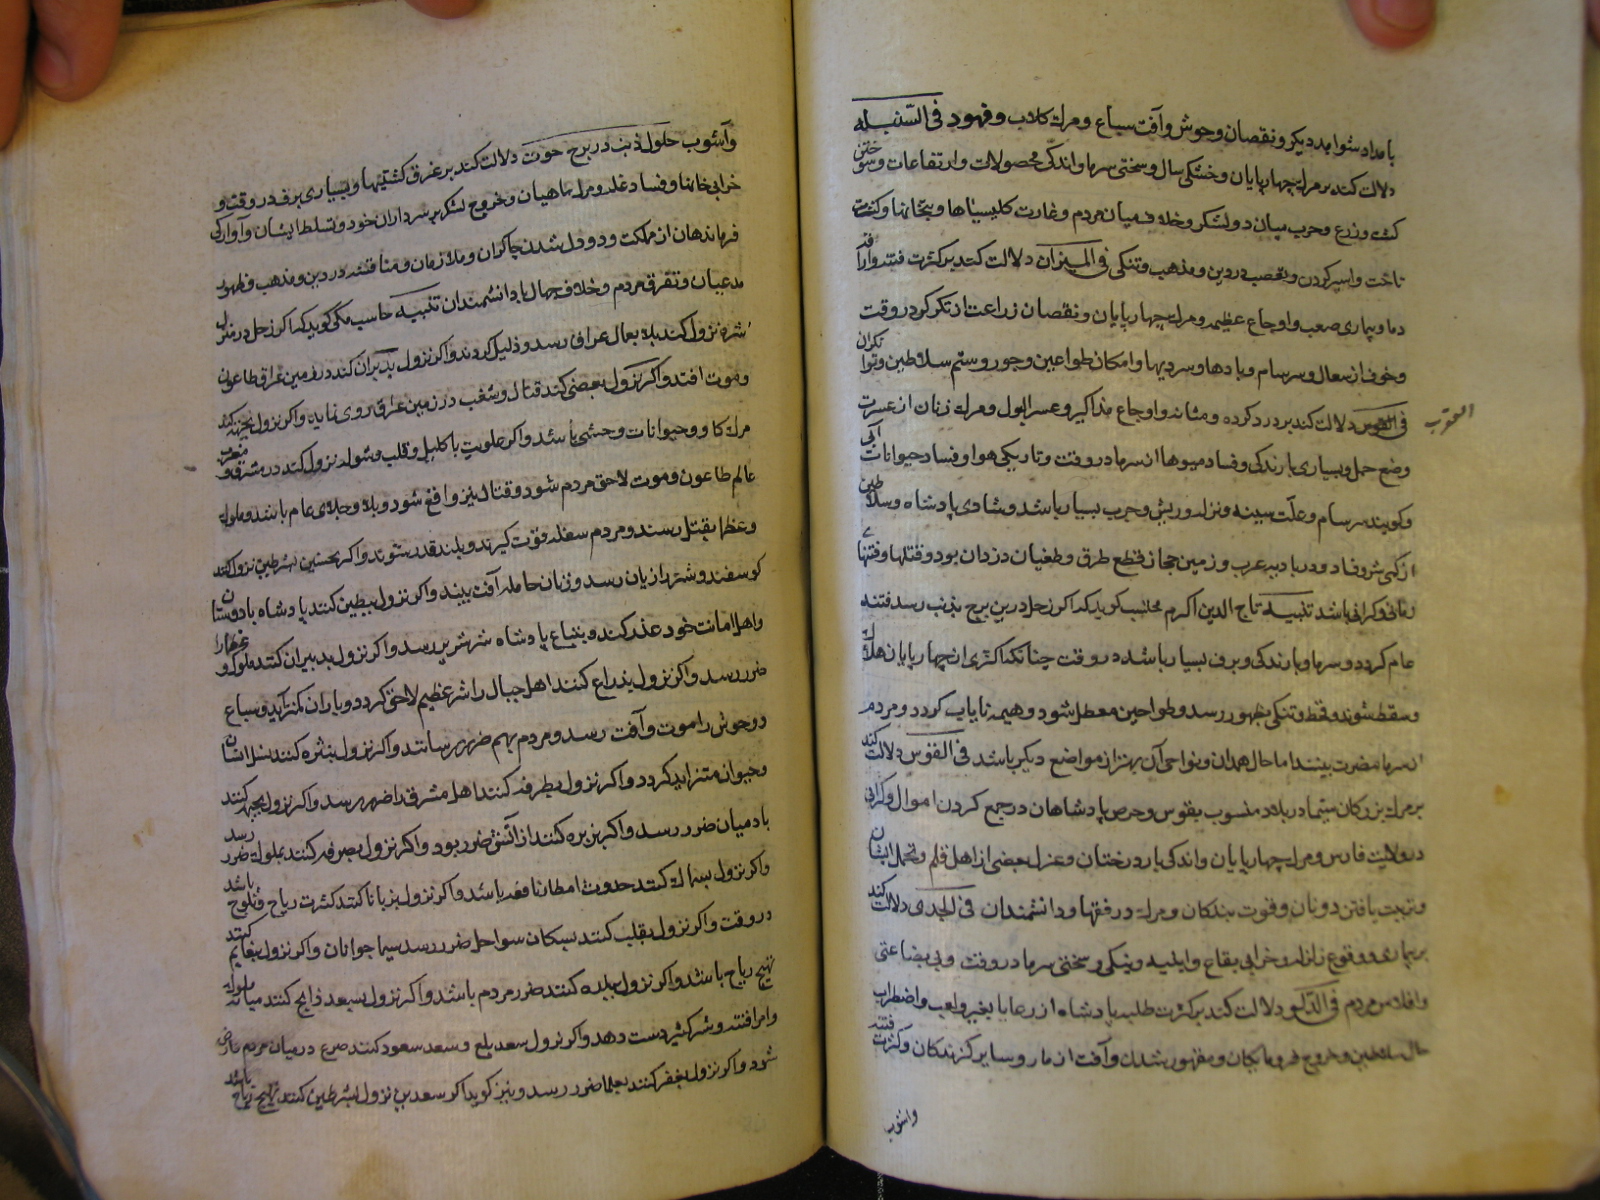 بامداد شواید دیکر و نقصان وحوش و آفت سباع و مرك کلاب و فهود فی السنبله
دلالت کند بر مرك چهارپایان و خشکی سال و سختی سرما و اندکی محصولات و ارتفاعات و سوختن
کشت و زرع و حرب میان دو لشکر و خلاف میان مردم و غارت کلیسیاها و بتخانها و کثرت
تاخت و اسیر کردن و تعصب در دین و مذهب و تنکی فی المیزان دلالت کند بر کثرت فتنه و
دما و بیماری صعب و اوجاع عظیمه و مرك چهارپایان و نقصان زراعت از تکرك در وقت
و خوف از سعال و سرسام و بادها و سردیها و امکان طواعین و جور و ستم سلاطین و توانکران
فی القوس دلالت کند بر درد کرده و مثانه و اوجاع مذاکیر و عسر البول و مرك زنان از عسرت
العقرب
وضع حمل و بسیاری بارندکی و فساد میوها از سرما در وقت و تاریکی هوا و فساد حیوانات آبی
و کویند سرسام و علت سینه و نزله و ریش و جرب بسیار باشد و شادی پادشاه و سلاطین
از کی شر و فساد و در بادیه عرب و زمین حجاز قطع طرق و طغیان دزدان بود و قتلها و فتنهای
و کرانی باشد تنبیه تاج الدین اکرم کوید که اکر زحل درین برج بذنب رسد فتنه
عام کردد و سرما و بارندکی و برف بسیار باشد در وقت چنانکه اکثری از چهارپایان هلاك
و سقط شوند و قحط و تنکی بظهور رسد و طواحین معطل شود و هیمه نایاب کردد و مردم
از سرما مضرت بینند اما حال همدان و نواحی آن بهتر از مواضع دیکر باشد فی القوس دلالت کند
بر مرك بزرکان سیما در بلاد منسوب بقوس و حرص پادشاهان در جمع کردن اموال و کرانی
در ولایت فارس و مرك چهارپایان و اندکی بار درختان و عزل بعضی از اهل قلم و تحمل ایشان
و تربیت یافتن دونان و فوت بندکان و مرك در فقها و دانشمندان فی الجدی دلالت کند
بر بیماری و وقوع زلزله و خرابی بقاع و ابنیه و تنکی و سختی سرما در وقت و بی بضاعتی
و افلاس مردم فی الدلو دلالت کند بر کثرت طلب پادشاه از رعایا بغیر واجب و اضطراب
حال سلاطین و خروج فرومایکان و مقهور شدن و آفت از مار و سایر کزندکان و کثرت فتنه
واشوب
وآشوب حلول ذنب در برج حوت دلالت کند بر غرق کشتیها و بسیاری برف در وقت و
خرابی خانها و فساد غله و مرك ماهیان و خروج لشکر بر سرداران خود و تسلط ایشان و آوارکی
فرماندهان از مملکت و دو دل شدن چاکران و ملازمان و مناقشه در دین و مذهب و ظهور
مدعیان و تفرق مردم و خلاف جهال با دانشمندان تنبیه حاسب مکی کوید که اکر زحل در منزل
نثره نزول کند بلا بعمال عراق رسد و ذلیل کردند و اکر نزول بدبران کند در زمین عراق طاعون
و موت افتد و اکر نزول کند قتال و شغب در زمین عراق روی نماید و اکر نزول بجبهه کند
مرك کاو و حیوانات وحشی باشد و اکر علویت باکلیل و قلب و شوله نزول کند در مشرق و مغرب
عالم طاعون و موت لاحق مردم شود و قتال نیز واقع شود و بلا و جلای عام باشد و ملوك
و عظما بقتل رسند و مردم سفله قوت کیرند و بلند قدر شوند و اکر نحسین بشرطین نزول کند
کوسفند و شتر را زیان رسد و زنان حامله آفت بینند و اکر نزول ببطین کنند پادشاه با دوستان
و اهل امانت خود عذر کند و بتباع پادشاه شر رسد و اکر نزول بدبران کنند ملوك و
ضرر رسد و اکر نزول بذراع کنند اهل جبال را شر عظیم لاحق کردد و باران کمتر آید و سباع
و وحوش را موت و آفت رسد و مردم بهم ضرر رسانند و اکر نزول بنثره کنند
و حیوان متزاید کردد و اکر نزول بطرفه کنند اهل مشرق را ضرر رسد و اکر نزول بجبهه کنند
بادمیان ضرر رسد و اکر بزبره کنند از آتش ضرر بود و اکر نزول بصرفه کنند بملوك ضرر رسد
و اکر نزول بسماك کنند حدوث امطار نافعه باشد و اکر نزول بزبانا کنند کثرت ریاح و ثلوج باشد
در وقت و اکر نزول بقلب کنند بسکان سواحل ضرر رسد سیما جوانان و اکر نزول بنعایم کنند
تهیج ریاح باشد و اکر نزول ببلده کنند ضرر مردم باشد و اکر نزول بسعد ذابح کنند میانه ملوك
و امرا فتنه و شر کثیر دست دهد و اکر نزول سعد بلع و سعد سعود کنند صرع در میان مردم عارض
شود و اکر نزول بغفر کنند بعلما ضرر رسد و نیز کوید اکر سعدین نزول بشرطین کنند تهیج ریاح باشد